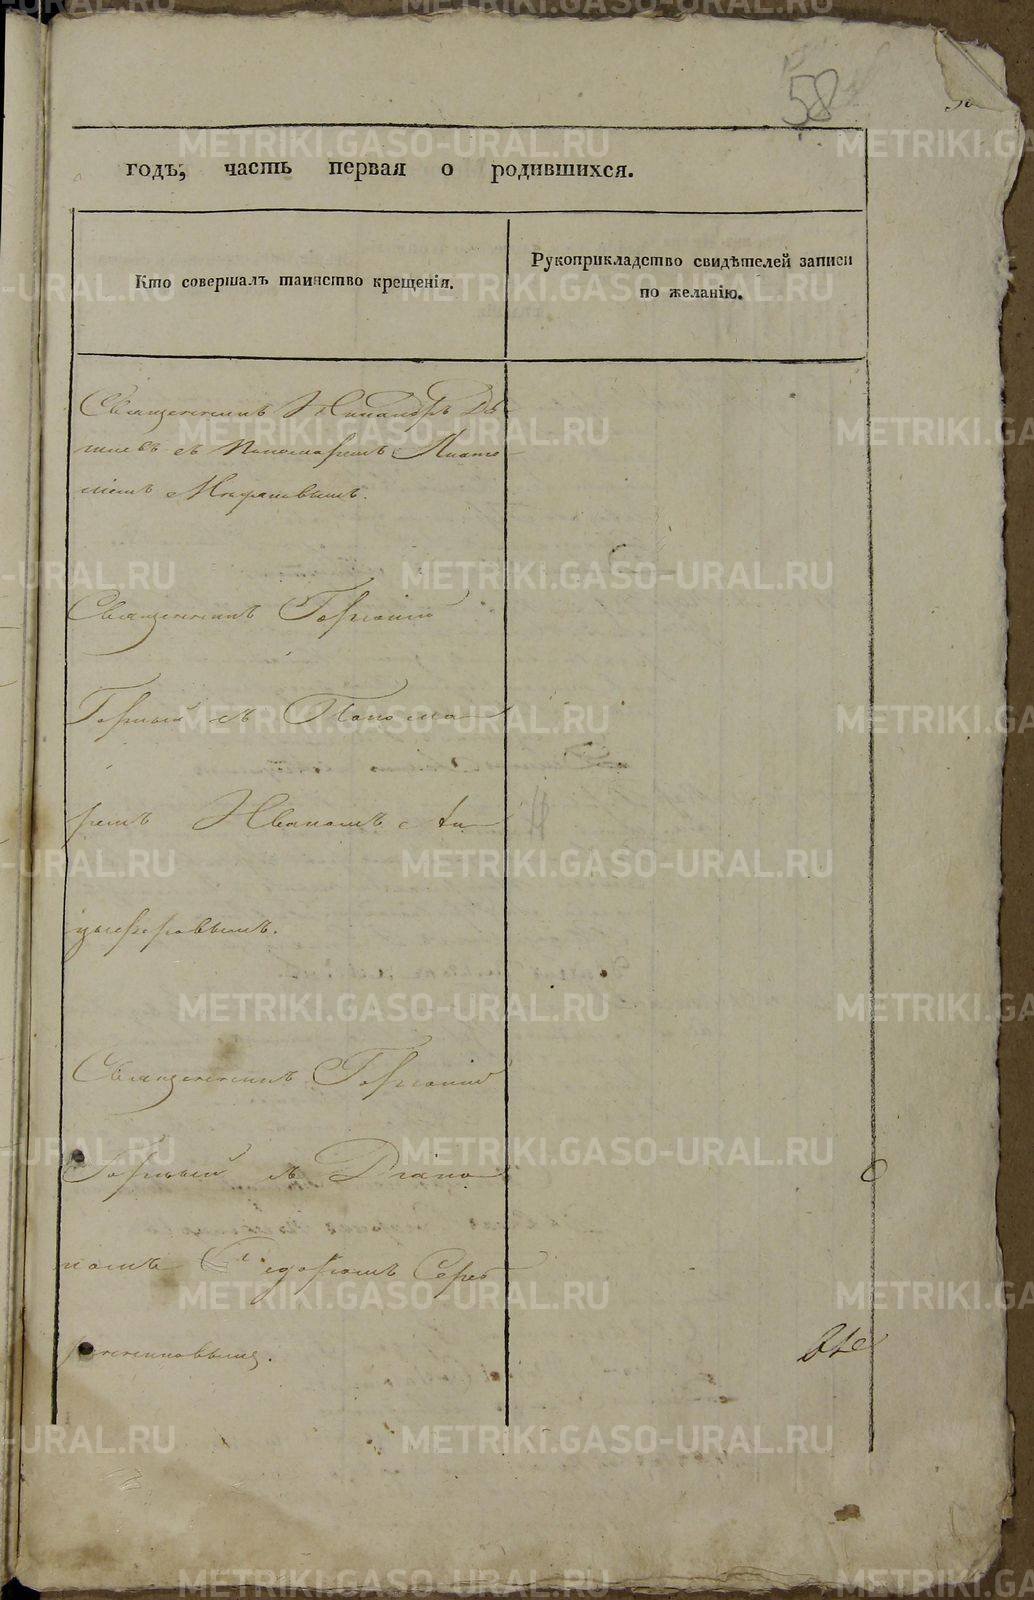 58
годъ, часть первая о родившихся.
Кто совершалъ таинство крещенія.
Рукоприкладство свидѣтелей записи
по желанію.
Священникъ Никандръ
съ Пономаремъ
Священникъ Горгоній
Горный съ Понома
ремъ Иваномъ Ан
цыферовымъ.
Священникъ Горгоній
Горный съ Діако
номъ Федоромъ Сереб
ренниковымъ.
METRIKI.GASO-URAL.RU